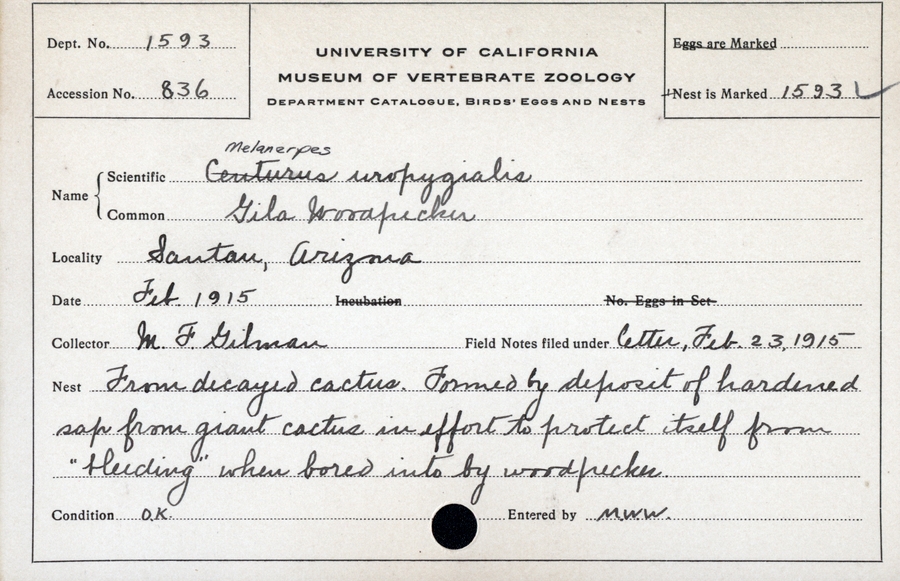 Dept. No. 1593
Accession No. 836
UNIVERSITY OF CALIFORNIA
MUSEUM OF VERTEBRATE ZOOLOGY
DEPARTMENT CATALOGUE, BIRDS' EGGS AND NESTS
Eggs are Marked
Nest is Marked 1593
Melanerpes
Name
Scientific Centurus uropygialis
Common Gila Woodpecker
Locality Santan, Arizona
Date Feb. 1915 Incubation No. Eggs in Set
Collector M. F. Gilman Field Notes filed under Letter, Feb. 23, 1915
Nest From decayed cactus. Formed by deposit of hardened
sap from giant cactus in effort to protect itself from
"bleeding" when bored into by woodpecker.
Condition O.K. Entered by M.W.W.